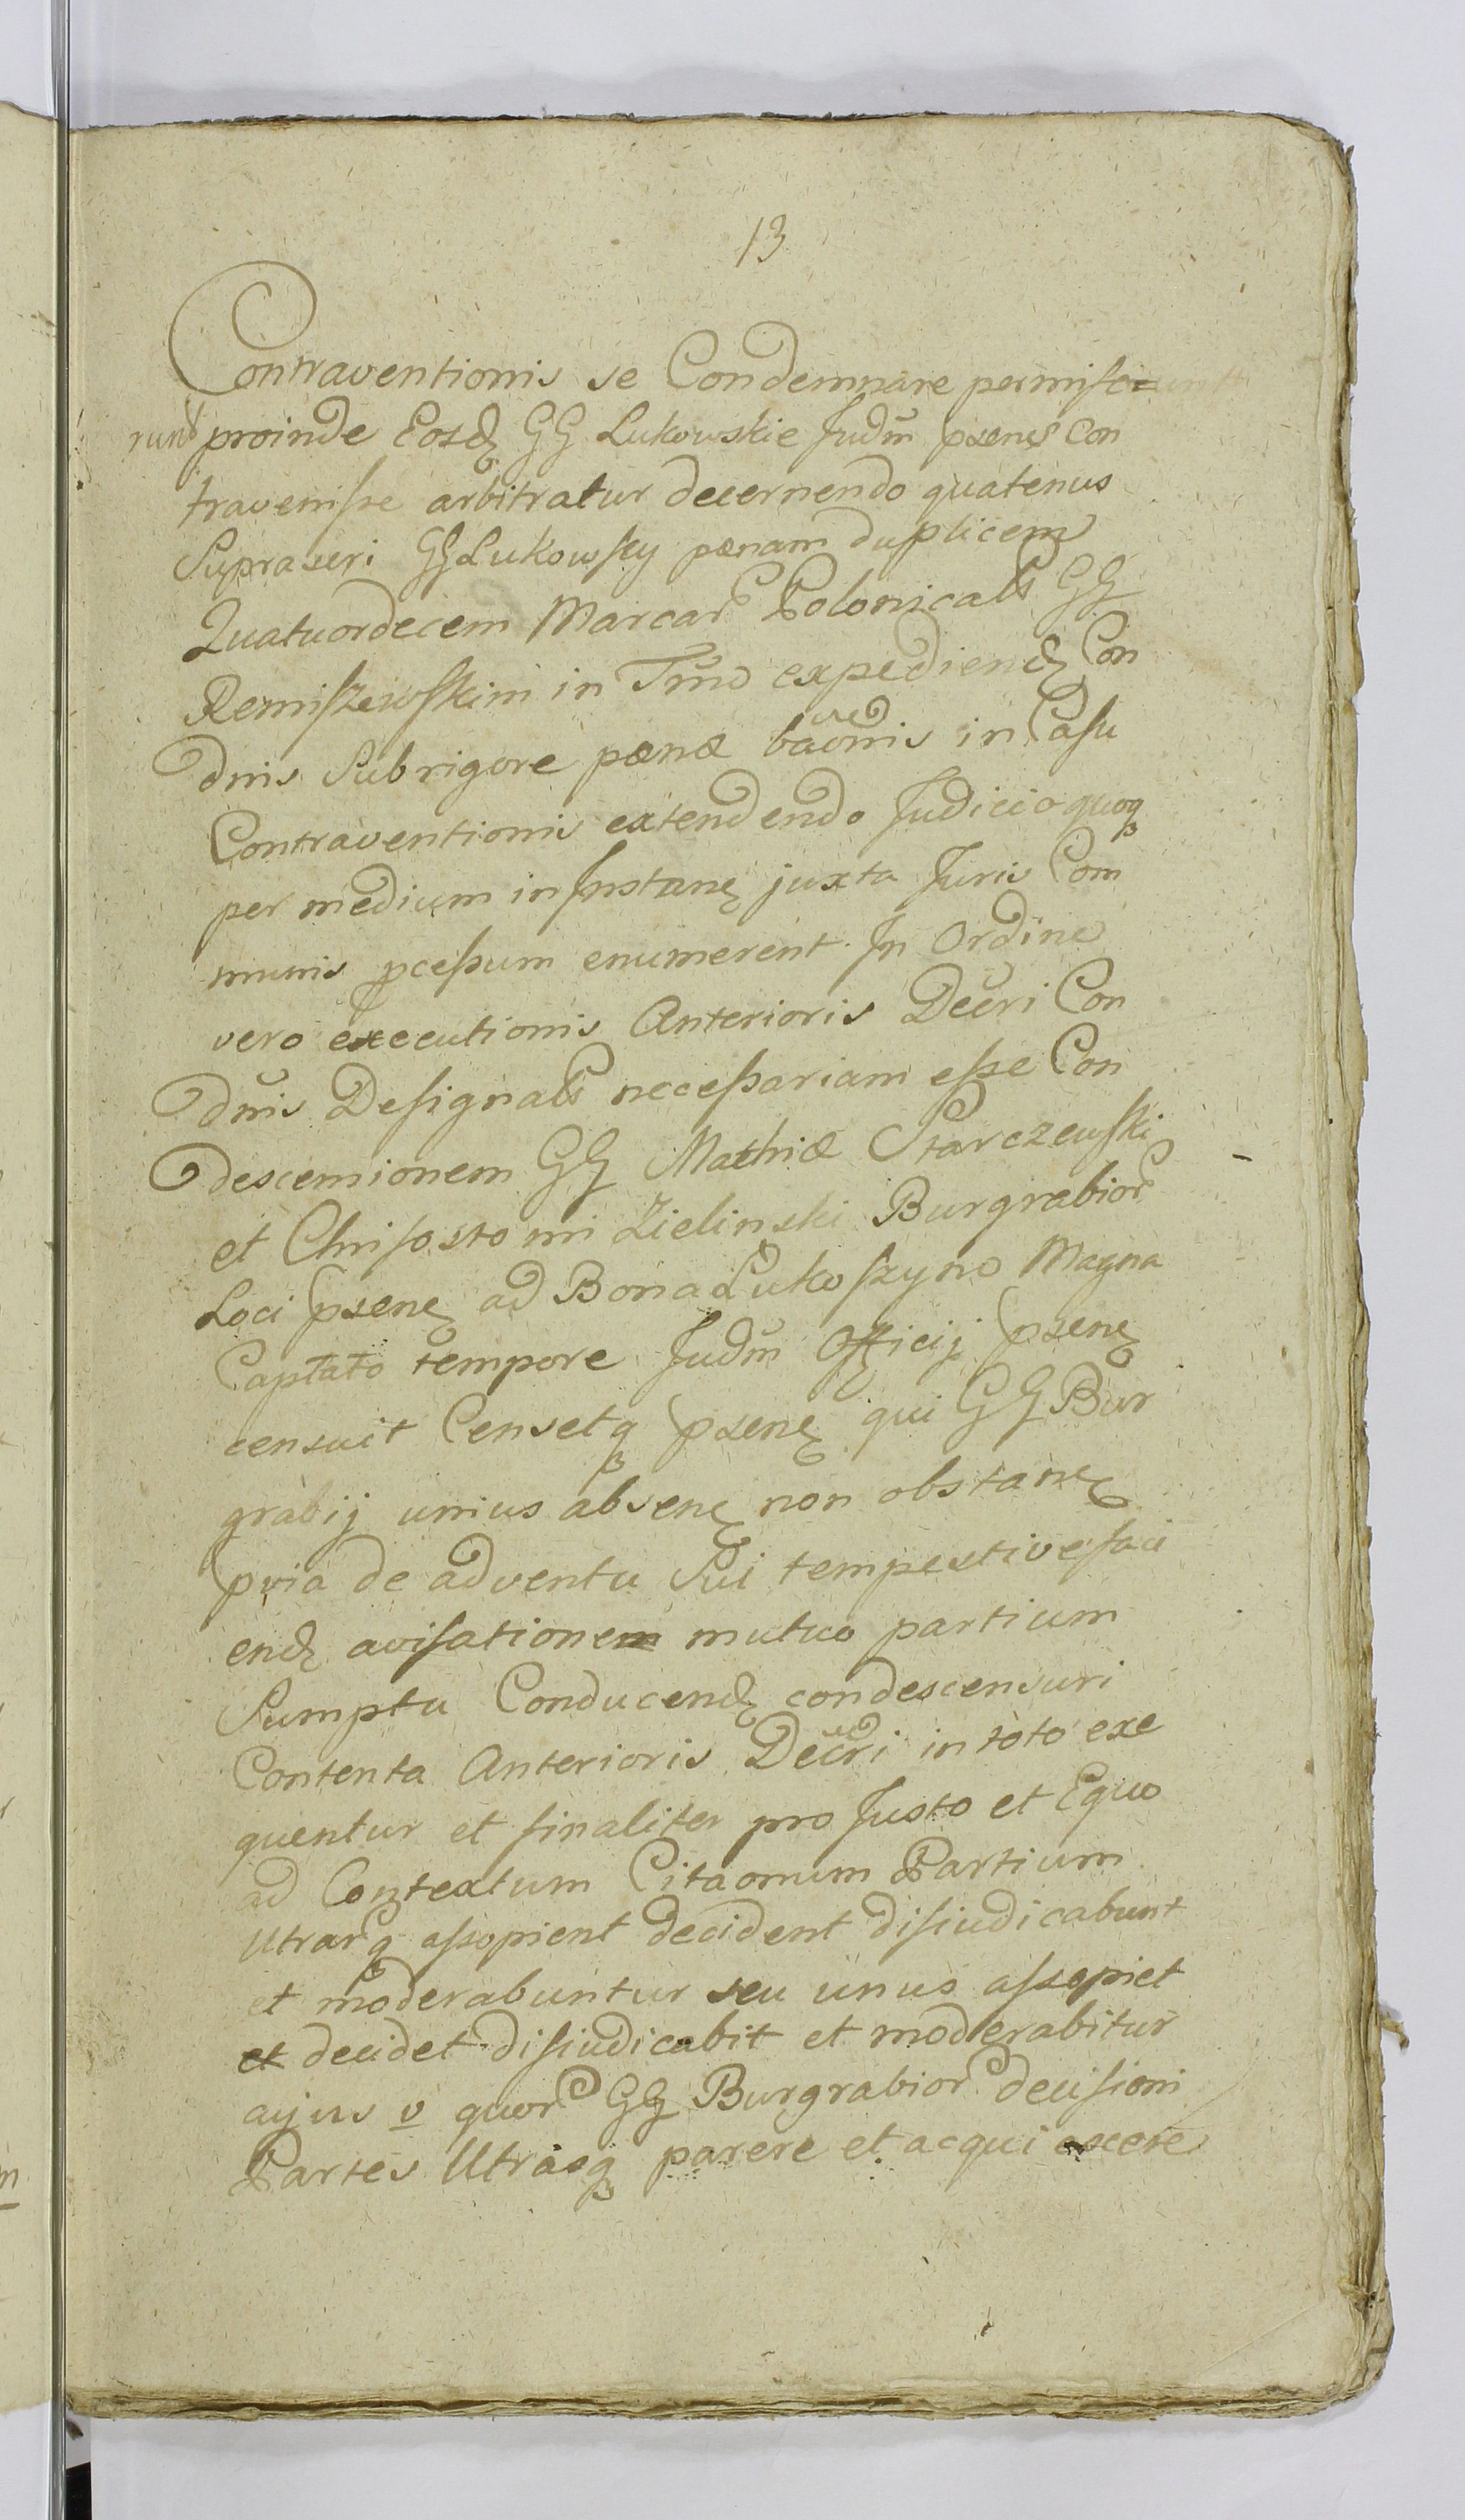 13
Contraventionis se Condemnare permise
runt proinde Eosdꝫ GG Lukowskie Judm̃ psens Con
travenisse arbitratur decernendo quatenus
Supraseri GG Lukowscy pænam duplicem
Quatuordecem Marcar Polonicals GG
Remiszewskim in Tm̃o expediendꝫ Con
dnis Sub rigore pænæ baõnis in Casu
Contraventionis extendendo Judicio quoqꝫ
per medium in Instanꝫ juxta Juris Com
munis pcessum enumerent. In Ordine
vero executionis Anterioris Decri Con
dnis Designals necessariam esse Con
descensionem GG Mathiæ Starczewski
et Chrisostomi Zielinski Burgrabior
Loci psenꝫ ad Bona Lukoszyno Magna
Captato tempore Judm̃ Officij psenꝫ
censuit Censetqꝫ psenꝫ qui GG Bur
grabij unius absenꝫ non obstanꝫ
pvia de adventu Sui tempestive faci
endꝫ avisatione mutuo partium
Sumptu Conducendꝫ condescensuri
Contenta Anterioris Decri in toto exe
quentur et finaliter pro Justo et Equo
ad Contextum Citaonum Partium
Utrarqꝫ assopient decident disiudicabunt
et moderabuntur seu unus assopiet
et decidet disiudicabit et moderabitur
cujus v quor GG Burgrabior decisioni
Partes Utrasqꝫ parere et acquiescere